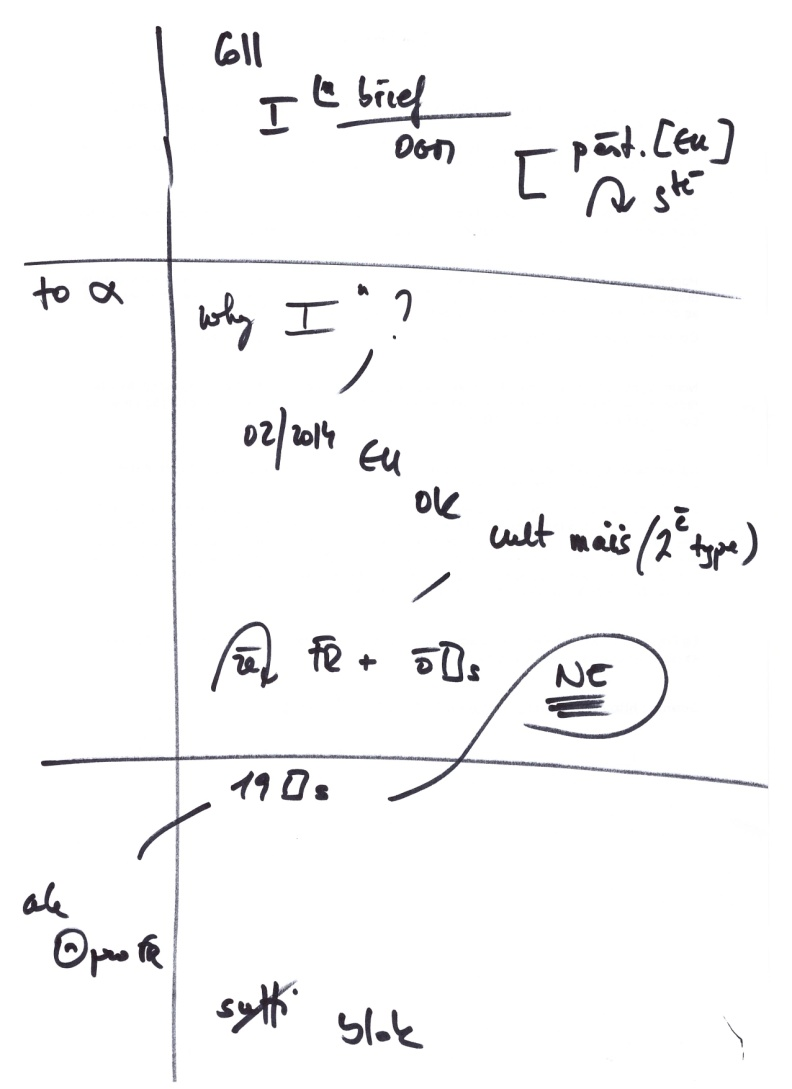 Coll
I Lⁿ brief
OGM
[ pēnt. [EU]
sté
to α
why I " ?
02/2014 EU
ok
cult maïs (2ē type)
FR + ō□s
NE
19 □s
ale
pro FR
suffi blok